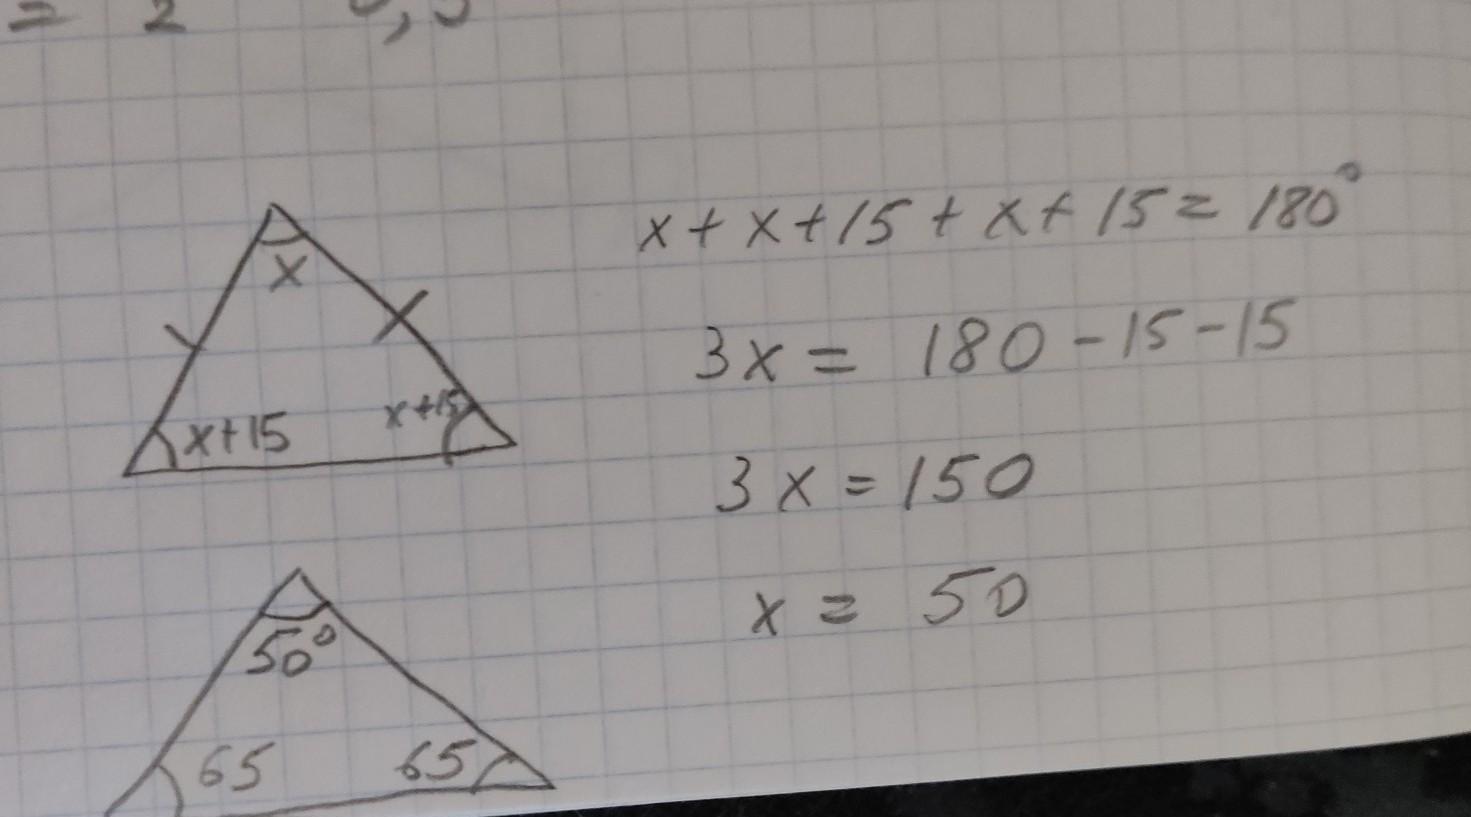 = 2
x + x + 15 + x + 15 = 180°
x
3x = 180 - 15 - 15
x+15 x+15
3x = 150
x = 50
50°
65 65